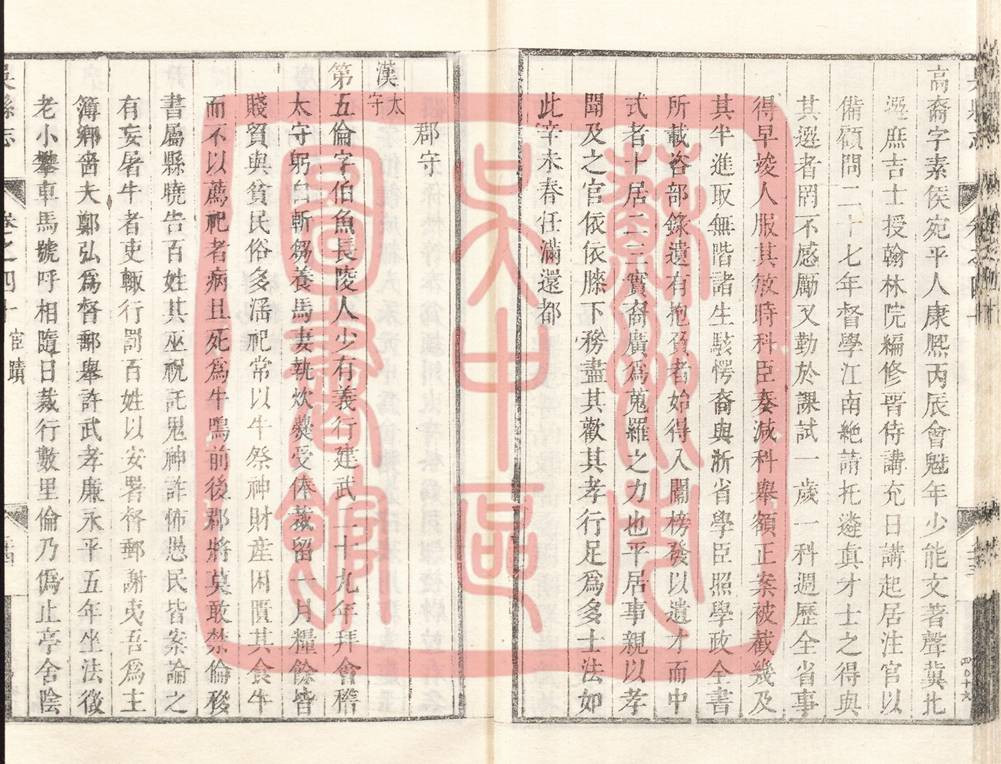 高裔字素侯宛平人康熙丙辰會魁年少能文著聲冀北
選庶吉士授翰林院編修晋侍講充日講起居注官以
備顧問二十七年督學江南絶請托遴真才士之得與
其選者罔不感勵又勤於課試一歲一科週歷全省事
得早竣人服其敏時科臣奏減科舉額正案被截幾及
其半進取無階諸生駭愕裔與浙省學臣照學政全書
所載咨部錄遺有抱負者始得入闈榜發以遺才而中
式者十居二三實裔廣爲蒐羅之力也平居事親以孝
聞及之官依依膝下務盡其歡其孝行足爲多士法如
此辛未春任滿還都
郡守
漢太守
第五倫字伯魚長陵人少有義行建武二十九年拜會稽
太守躬自斬芻養馬妻執炊爨受俸裁留一月糧餘皆
賤貿與貧民俗多淫祀常以牛祭神財産困匱其食牛
而不以薦祀者病且死爲牛鳴前後郡將莫敢禁倫移
書屬縣曉告百姓其巫祝託鬼神詐怖愚民皆案論之
有妄屠牛者吏輙行罰百姓以安署督郵謝夷吾爲主
簿鄉嗇夫鄭弘爲督郵舉許武孝廉永平五年坐法徵
老小攀車馬號呼相隨日裁行數里倫乃僞止亭舍陰
吳縣志
卷之四十
宦蹟
蘇州市
吳中區
圖書館
四〇十六